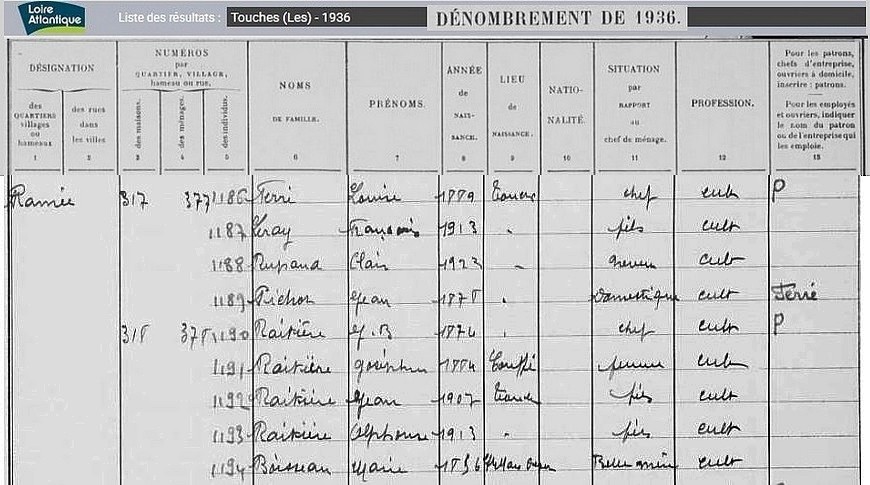 Loire
Atlantique
Liste des résultats : Touches (Les) - 1936
DÉNOMBREMENT DE 1936.
DÉSIGNATION
des QUARTIERS villages ou hameaux
des rues dans les villes
NUMÉROS
par QUARTIER, VILLAGE, hameau ou rue.
des maisons.
des ménages.
des individus.
NOMS
DE FAMILLE.
PRÉNOMS.
ANNÉE
de
NAIS-
SANCE.
LIEU
de
NAISSANCE.
NATIO-
NALITÉ.
SITUATION
par
RAPPORT
au
chef de ménage.
PROFESSION.
Pour les patrons,
chefs d'entreprise,
ouvriers à domicile,
inscrire : patrons.
Pour les employés
et ouvriers, indiquer
le nom du patron
ou de l'entreprise qui
les emploie.
1 2 3 4 5 6 7 8 9 10 11 12 13
Ramée 317 377 1186 Ferré Louise Touches chef cult P
1187 Leray François 1913 " fils cult
1188 Clair 1923 " neveu cult
1189 Pichon Jean 187 " Domestique cult Ferré
318 378 1190 Raitière J.B 1874 " chef cult P
1191 Raitière Joséphine 1884 Couffé femme cult
1192 Raitière Jean 1907 Touches fils cult
1193 Raitière Alphonse 1913 " fils cult
1194 Boisseau Marie 1856 Belle mère cult